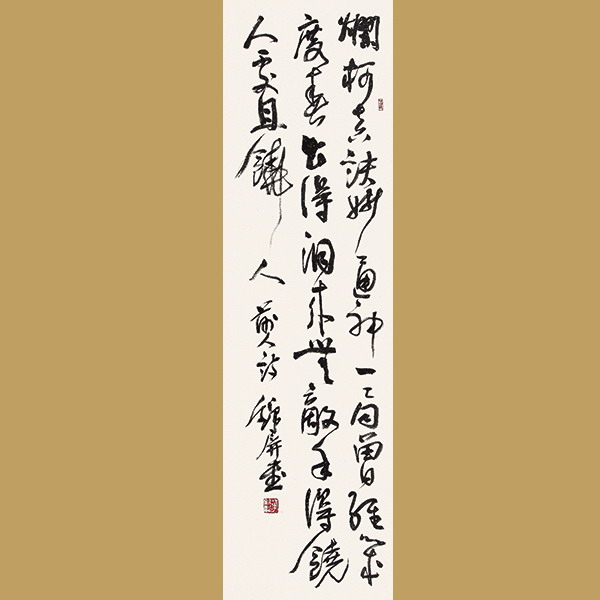 爛柯真訣妙通神一局曾經幾
度春出得洞来無敵手得饒
人處且饒人 前人詩 錦屏書